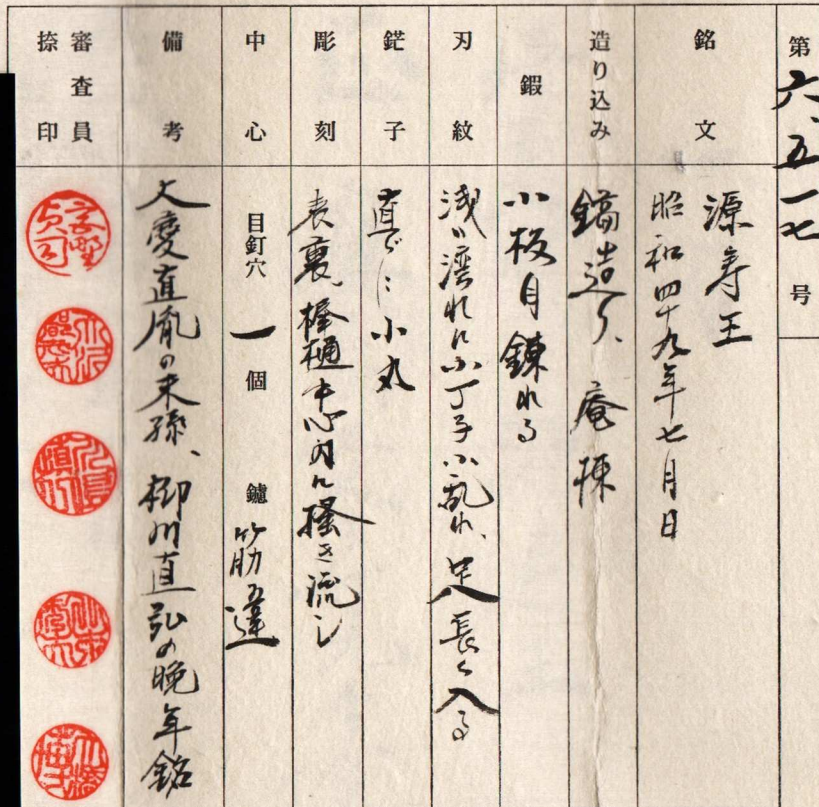 第六、五一七号
銘文
源寿王
昭和四十九年七月日
造り込み
鎬造り、庵棟
鍜
小板目錬れる
刃紋
浅い湾れに小丁子小乱れ、足長く入る
鋩子
直ぐに小丸
彫刻
表裏、棒樋中心内に掻き流し
中心
目釘穴 一 個 鑢 筋違
備考
大慶直胤の末孫、柳川直弘の晩年銘
審査員
捺印